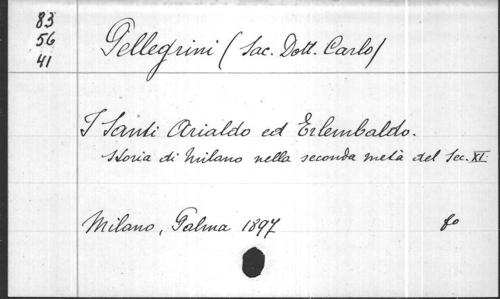 83
56
41
Pellegrini (Sac. Dott. Carlo)
I Santi Arialdo ed Erlembaldo.
Storia di Milano nella seconda metà del Sec. XI.
Milano, Palma 1897 fo